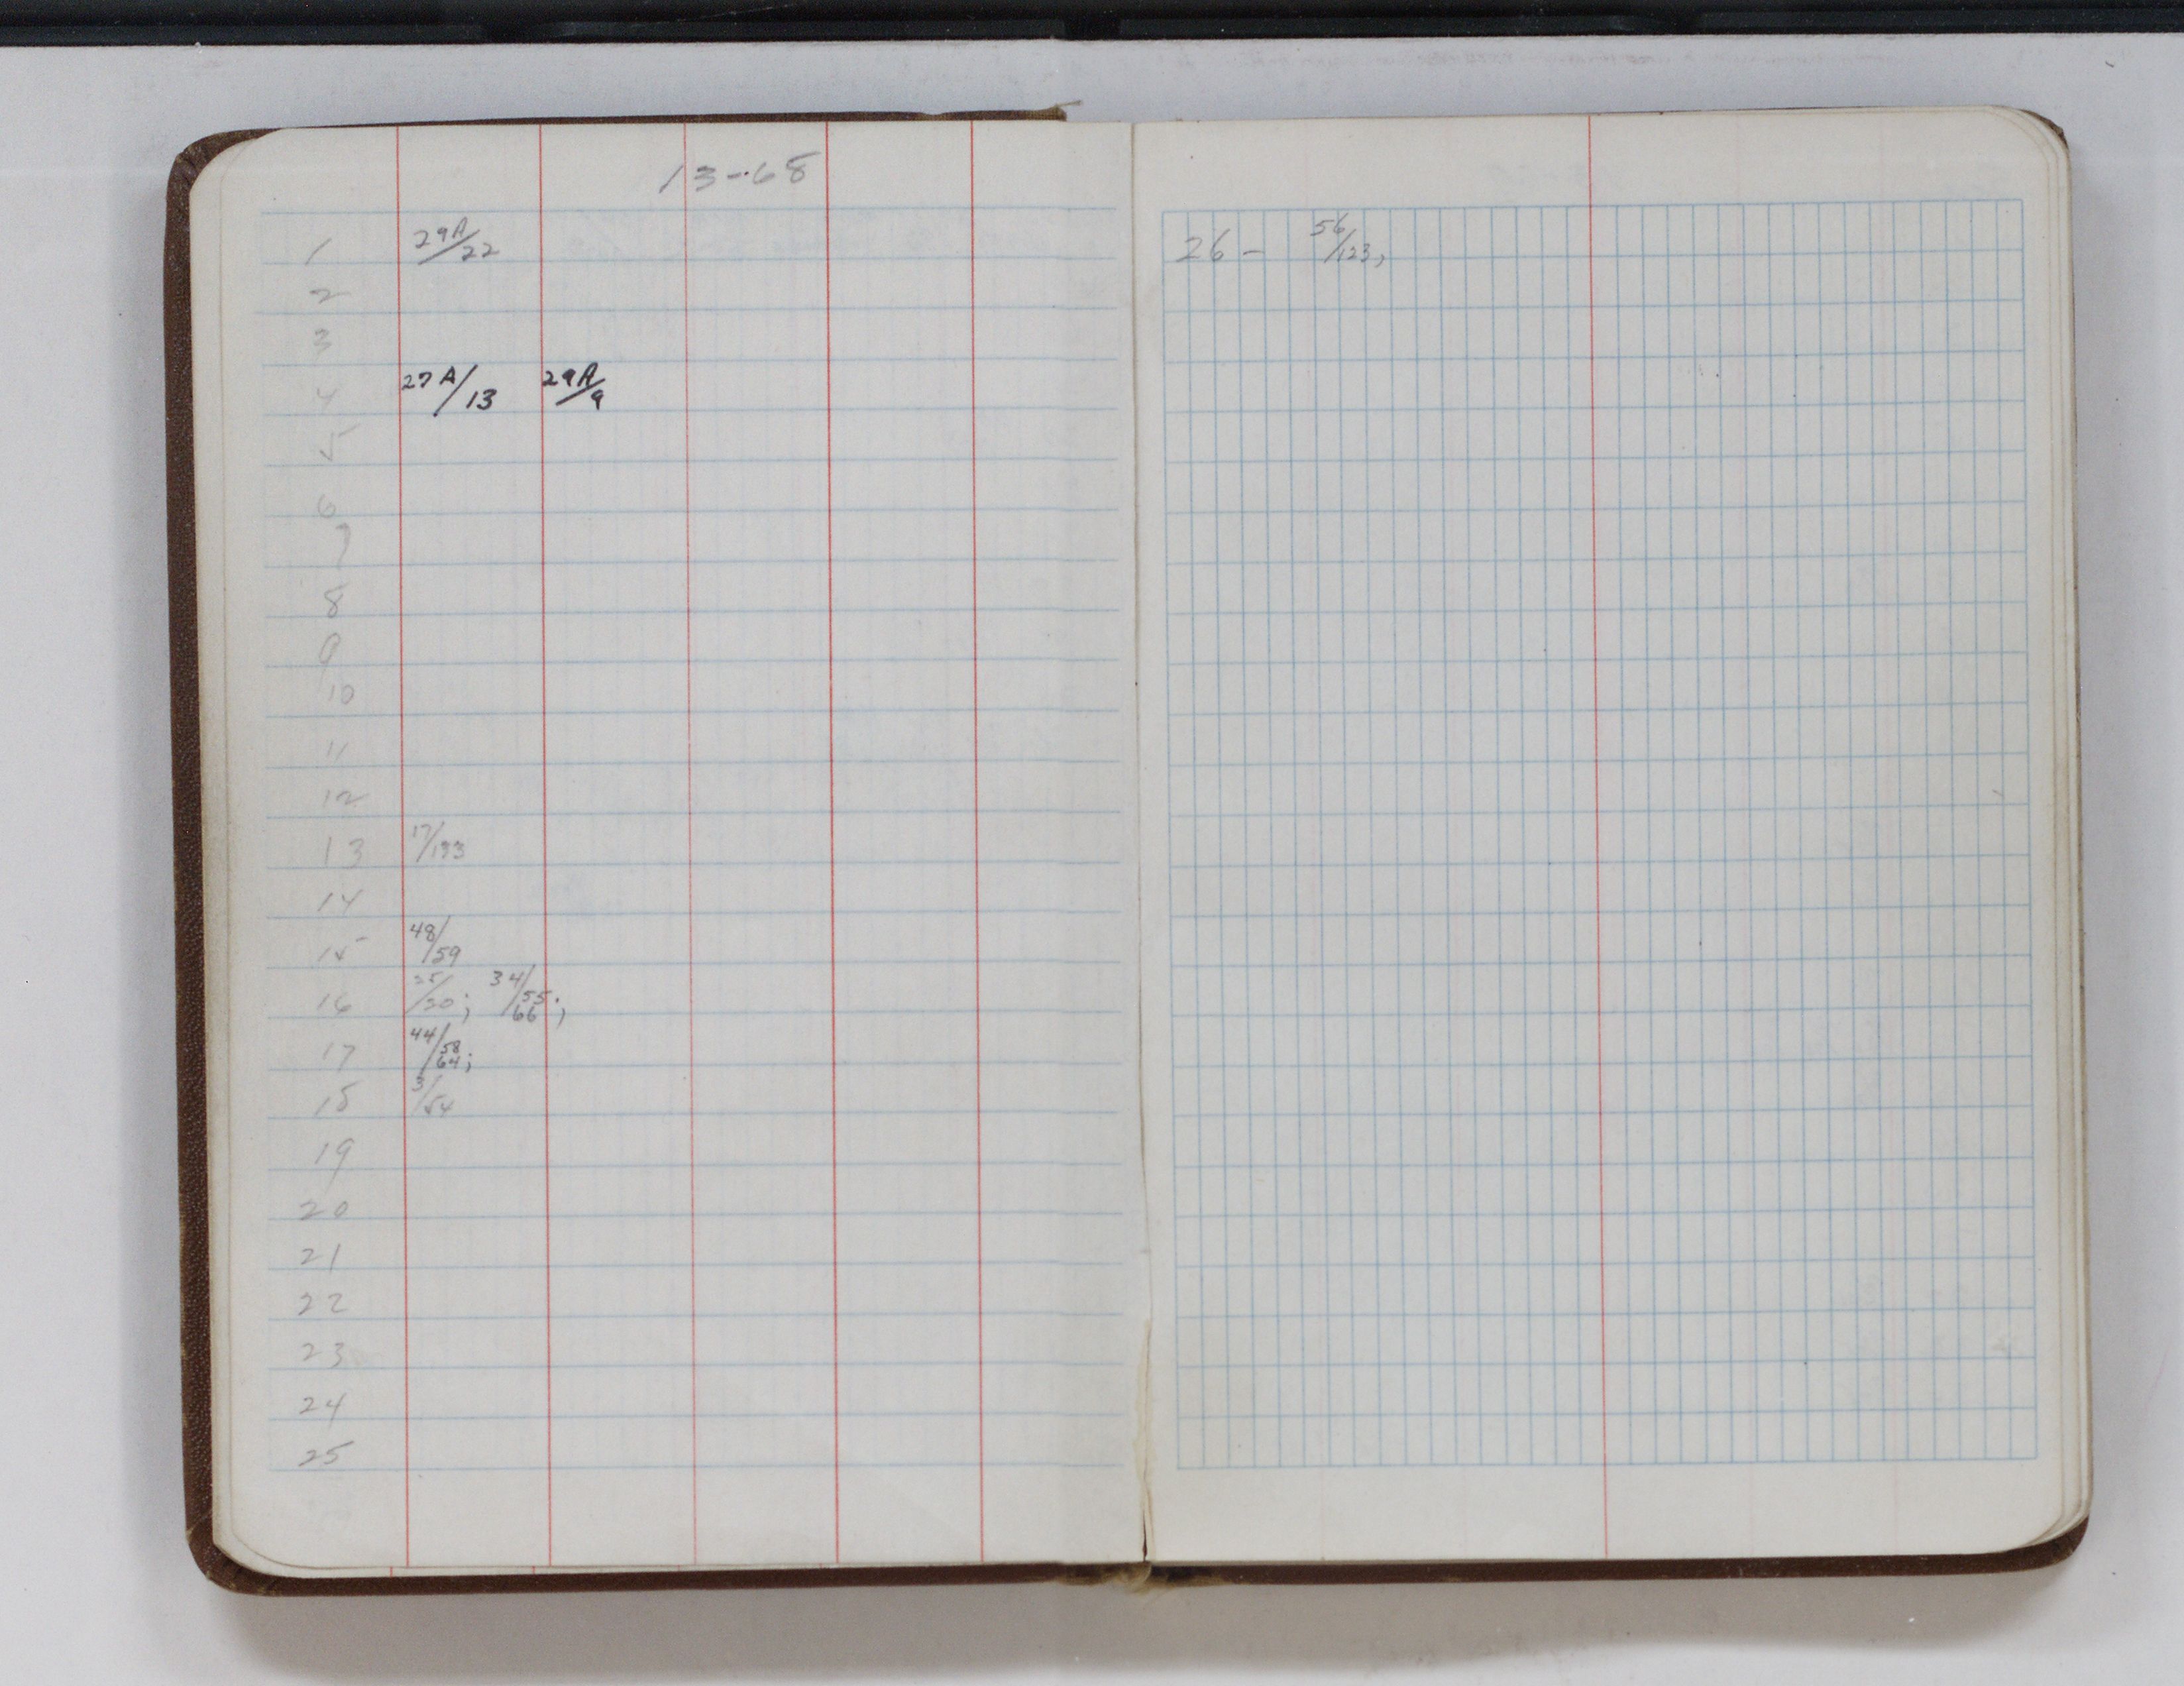 13-68
1 29A/22
2
3
4 27A/13 29A/9
5
6
7
8
9
10
11
12
13 17/133
14
15 48/59
16 35/30; 34/55; 66;
17 44/58 64;
18 3/54
19
20
21
22
23
24
25
26 - 56/123,